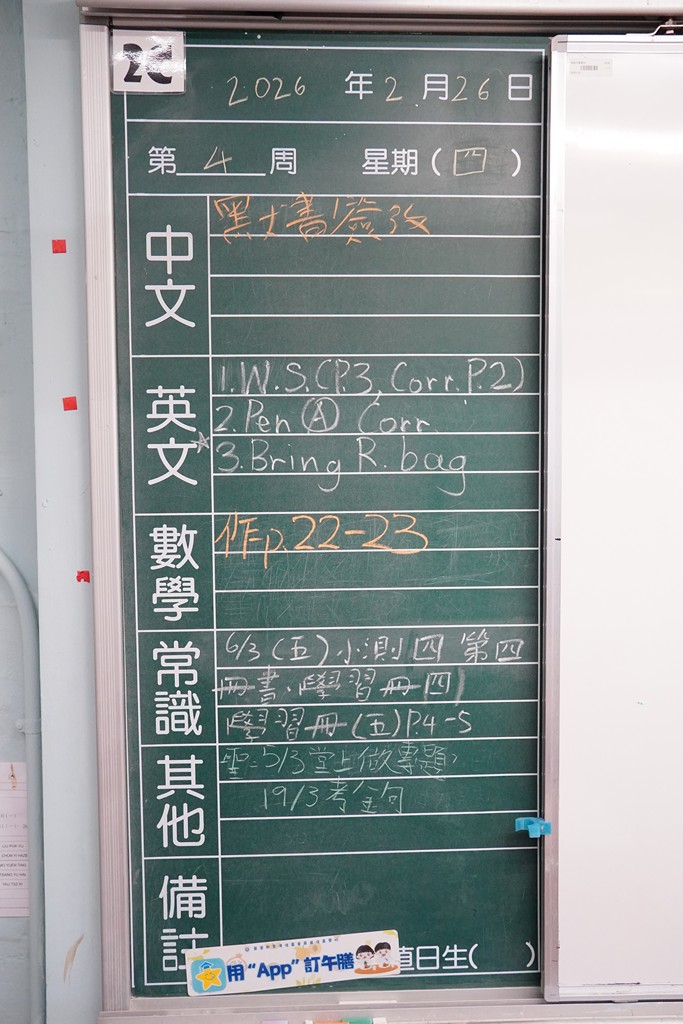 2C
2026 年 2 月 26 日
第 4 周 星期 ( 四 )
中文
黑丈書簽改
英文
1. W.S. (P.3, Corr. P.2)
2. Pen Ⓐ Corr.
☆ 3. Bring R. bag
數學
作p.22-23
常識
6/3 (五) 小測四 第四
冊書、學習冊(四)
學習冊(五) P.4-5
其他
聖: 5/3堂上做專題
19/3考金句
備註
用“App”訂午膳
值日生( )